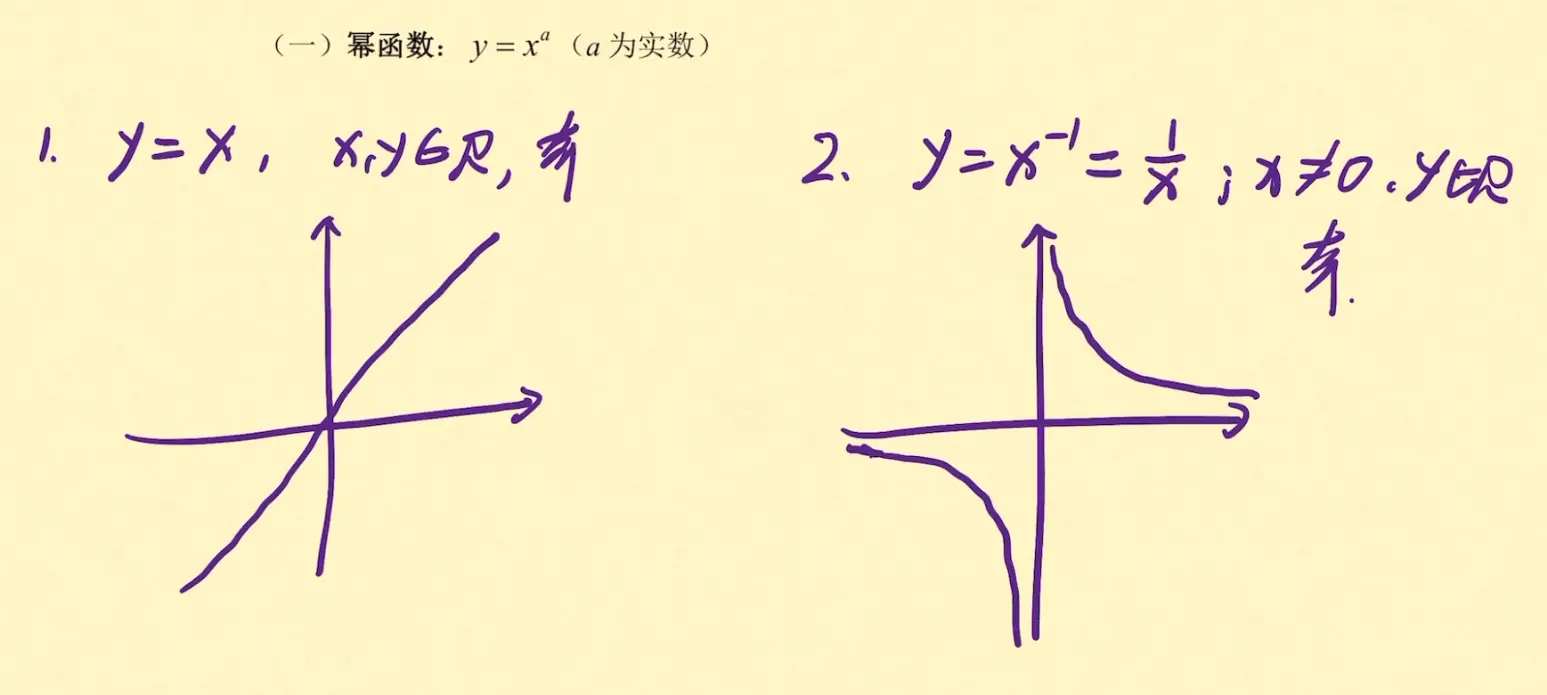 （一）幂函数：y = x^a（a 为实数）
1. y = x, x,y∈R, 奇
2. y = x^-1 = 1/x ; x≠0. y∈R
奇.